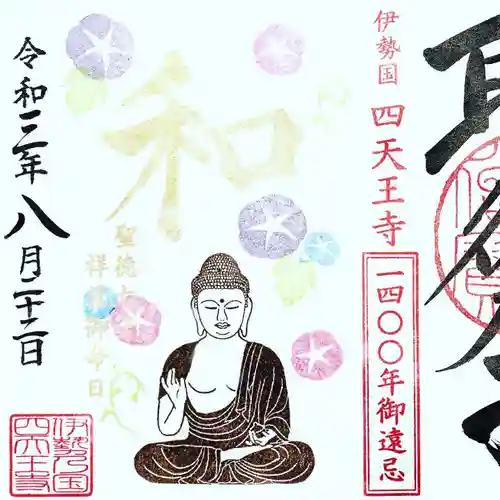 伊勢国
四天王寺
一四〇〇年御遠忌
和
聖徳太
祥月御命日
令和三年八月二十二日
伊勢乃国
四天王寺